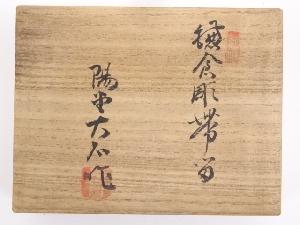 鎌倉彫帯留
陽堂大石作